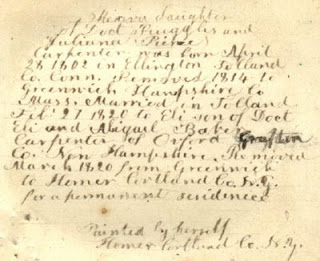 Merava Daughter
of Doct Ruggles and
Juliana Peirce
Carpenter was born April
28 1802 in Ellington Tolland
Co. Conn. Removed 1814 to
Greenwich Hampshire Co
Mass. Married in Tolland
Feb 27 1820 to Eli son of Doct
Eli and Abigail Baker
Carpenter of Orford Grafton
Co. New Hampshire. Removed
March 1820 from Greenwich
to Homer Cortland Co. N.Y.
for a permanent residence
Painted by herself
Homer Cortland Co. N.Y.